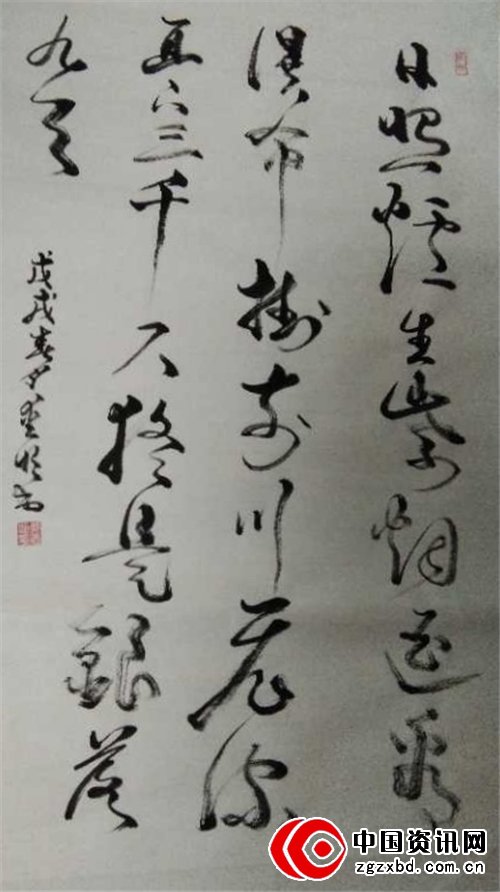 日照炉生紫烟遥看
瀑布掛前川飛流
直下三千尺疑是銀落
九天
戊戌春夕
中国资讯网
zgzxbd.com.cn